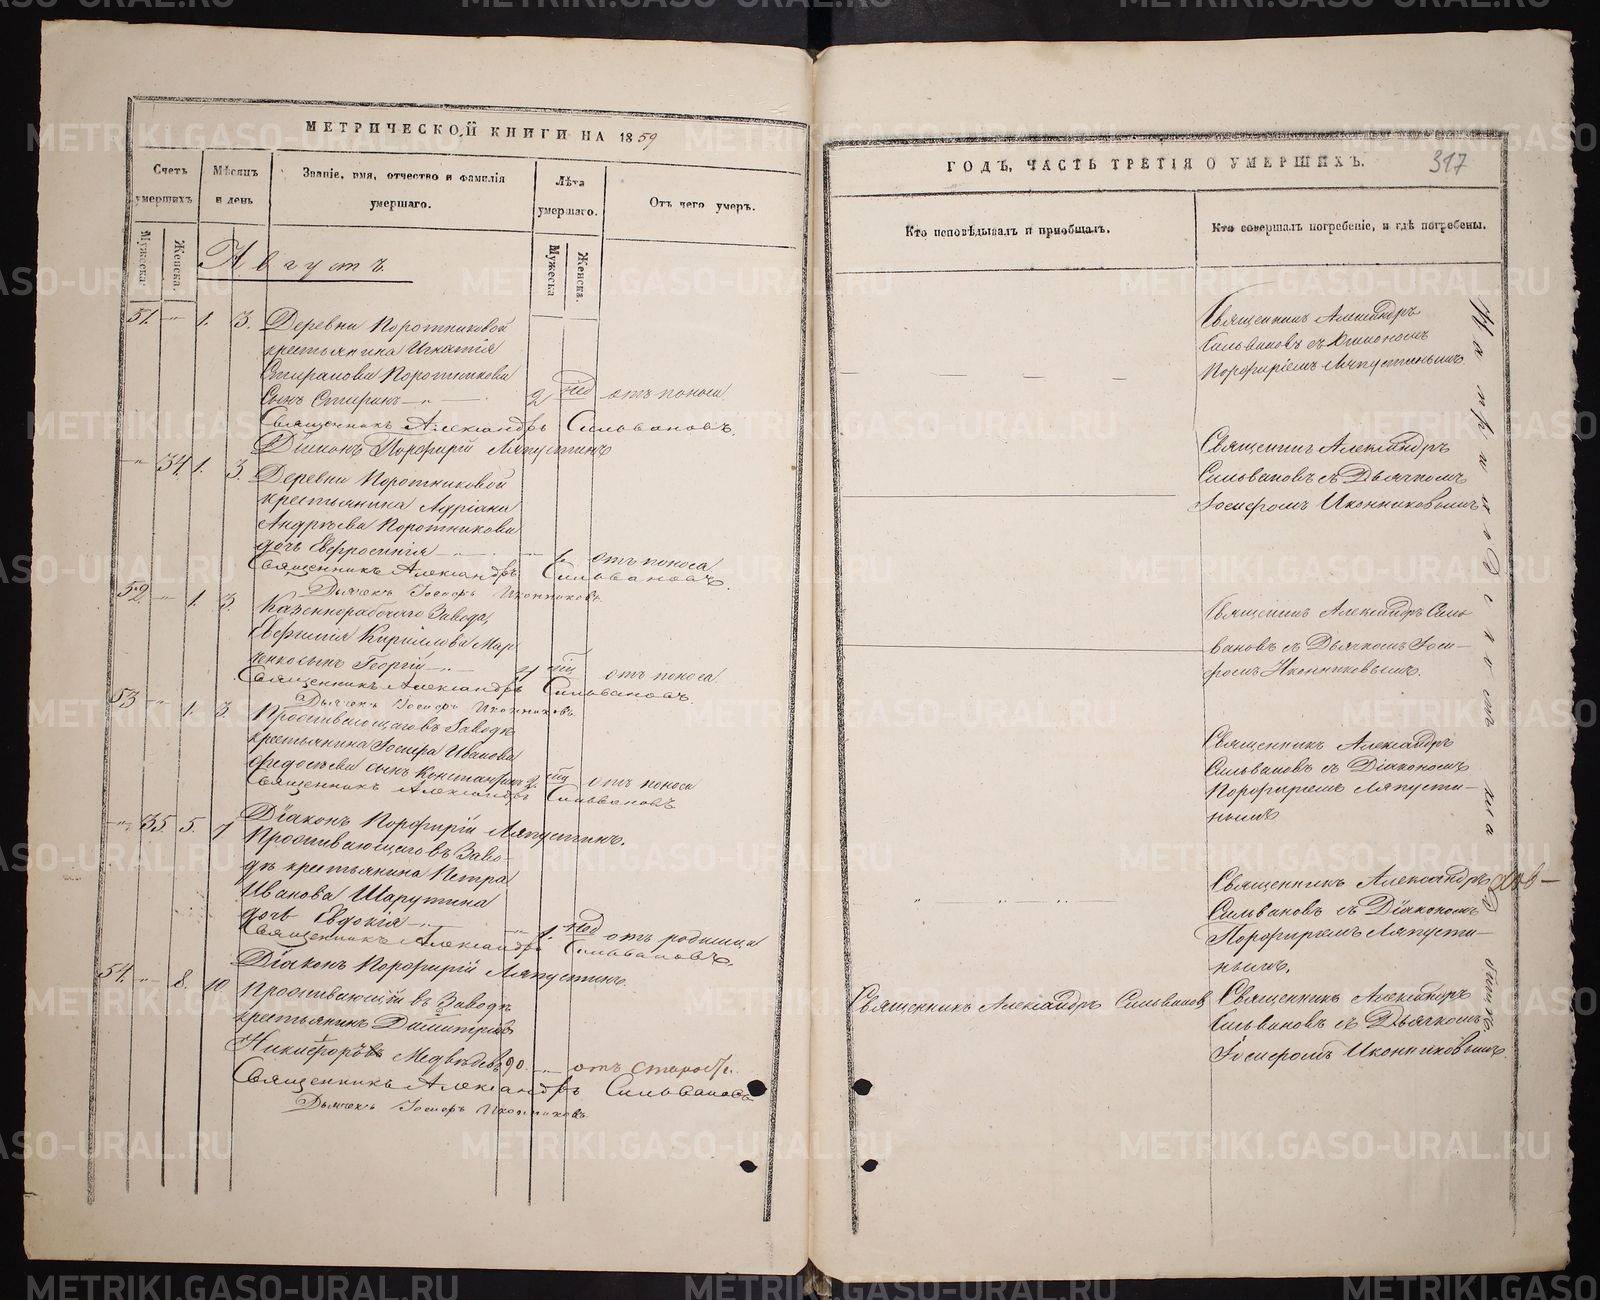 МЕТРИЧЕСКОЙ КНИГИ НА 1859
Счетъ умершихъ
Мѣсяцъ и день
Званіе, имя, отчество и фамилія умершаго.
Лѣта умершаго.
Отъ чего умеръ.
Мужеска.
Женска.
Мужеска
Женска.
Августъ
51. " 1. 3. Деревни Поротниковой
крестьянина Игнатія
Спиранови Поротникова
сынъ Спиринъ 2 нед отъ поноса
Священникъ Александръ Сильвановъ.
Діаконъ Порфирій Ляпустинъ
" 34. 1. 3. Деревни Поротниковой
крестьянина Адріана
Андрѣева Поротникова
дочь Евфросинія 1. отъ поноса
Священникъ Александръ Сильвановъ.
Дьячекъ Іосифъ Иконниковъ.
52. " 1. 3. Казеннорабочаго Завода,
Евфимія Кириллова Мар
ченко сынъ Георгій отъ поноса
Священникъ Александръ Сильвановъ.
Дьячекъ Іосифъ Иконниковъ.
53 " 1. 3. Проживающаго въ Заводѣ
крестьянина Іосифа Иванова
Федосѣева сынъ Константинъ отъ поноса
Священникъ Александръ Сильвановъ
Діаконъ Порфирій Ляпустинъ.
" 35 5. 7 Проживающаго въ Заво-
дѣ крестьянина Петра
Иванова Шарутина
дочь Евдокія 1. нед отъ родимца
Священникъ Александръ Сильвановъ.
Діаконъ Порфирій Ляпустинъ.
54. " 8. 10 Проживающій въ Заводѣ
крестьянинъ Димитрій
Никифоровъ Медвѣдевъ 90. отъ старости.
Священникъ Александръ Сильвановъ
Дьячекъ Іосифъ Иконниковъ
ГОДЪ, ЧАСТЬ ТРЕТІЯ О УМЕРШИХЪ.
317
Кто исповѣдывалъ и пріобщалъ.
Кто совершалъ погребеніе, и гдѣ погребены.
Священникъ Александръ
Сильвановъ съ Діакономъ
Порфиріемъ Ляпустинымъ
Священникъ Александръ
Сильвановъ съ Дьячкомъ
Іосифомъ Иконниковымъ
Священникъ Александръ Силь
вановъ съ Дьячкомъ Іоси-
фомъ Иконниковымъ.
Священникъ Александръ
Сильвановъ съ Діакономъ
Порфиріемъ Ляпусти-
нымъ
Священникъ Александръ
Сильвановъ съ Діакономъ
Порфиріемъ Ляпусти-
нымъ.
Священникъ Александръ Сильвановъ
Священникъ Александръ
Сильвановъ съ Дьячкомъ
Іосифомъ Иконниковымъ.
На приходскомъ кладбищѣ
METRIKI.GASO-URAL.RU